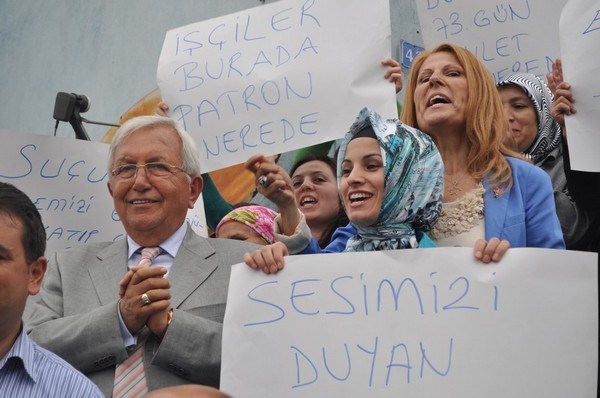 İŞÇİLER
BURADA
PATRON
NEREDE
73 GÜN
SUÇU
EMİZİ
SESİMİZİ
DUYAN